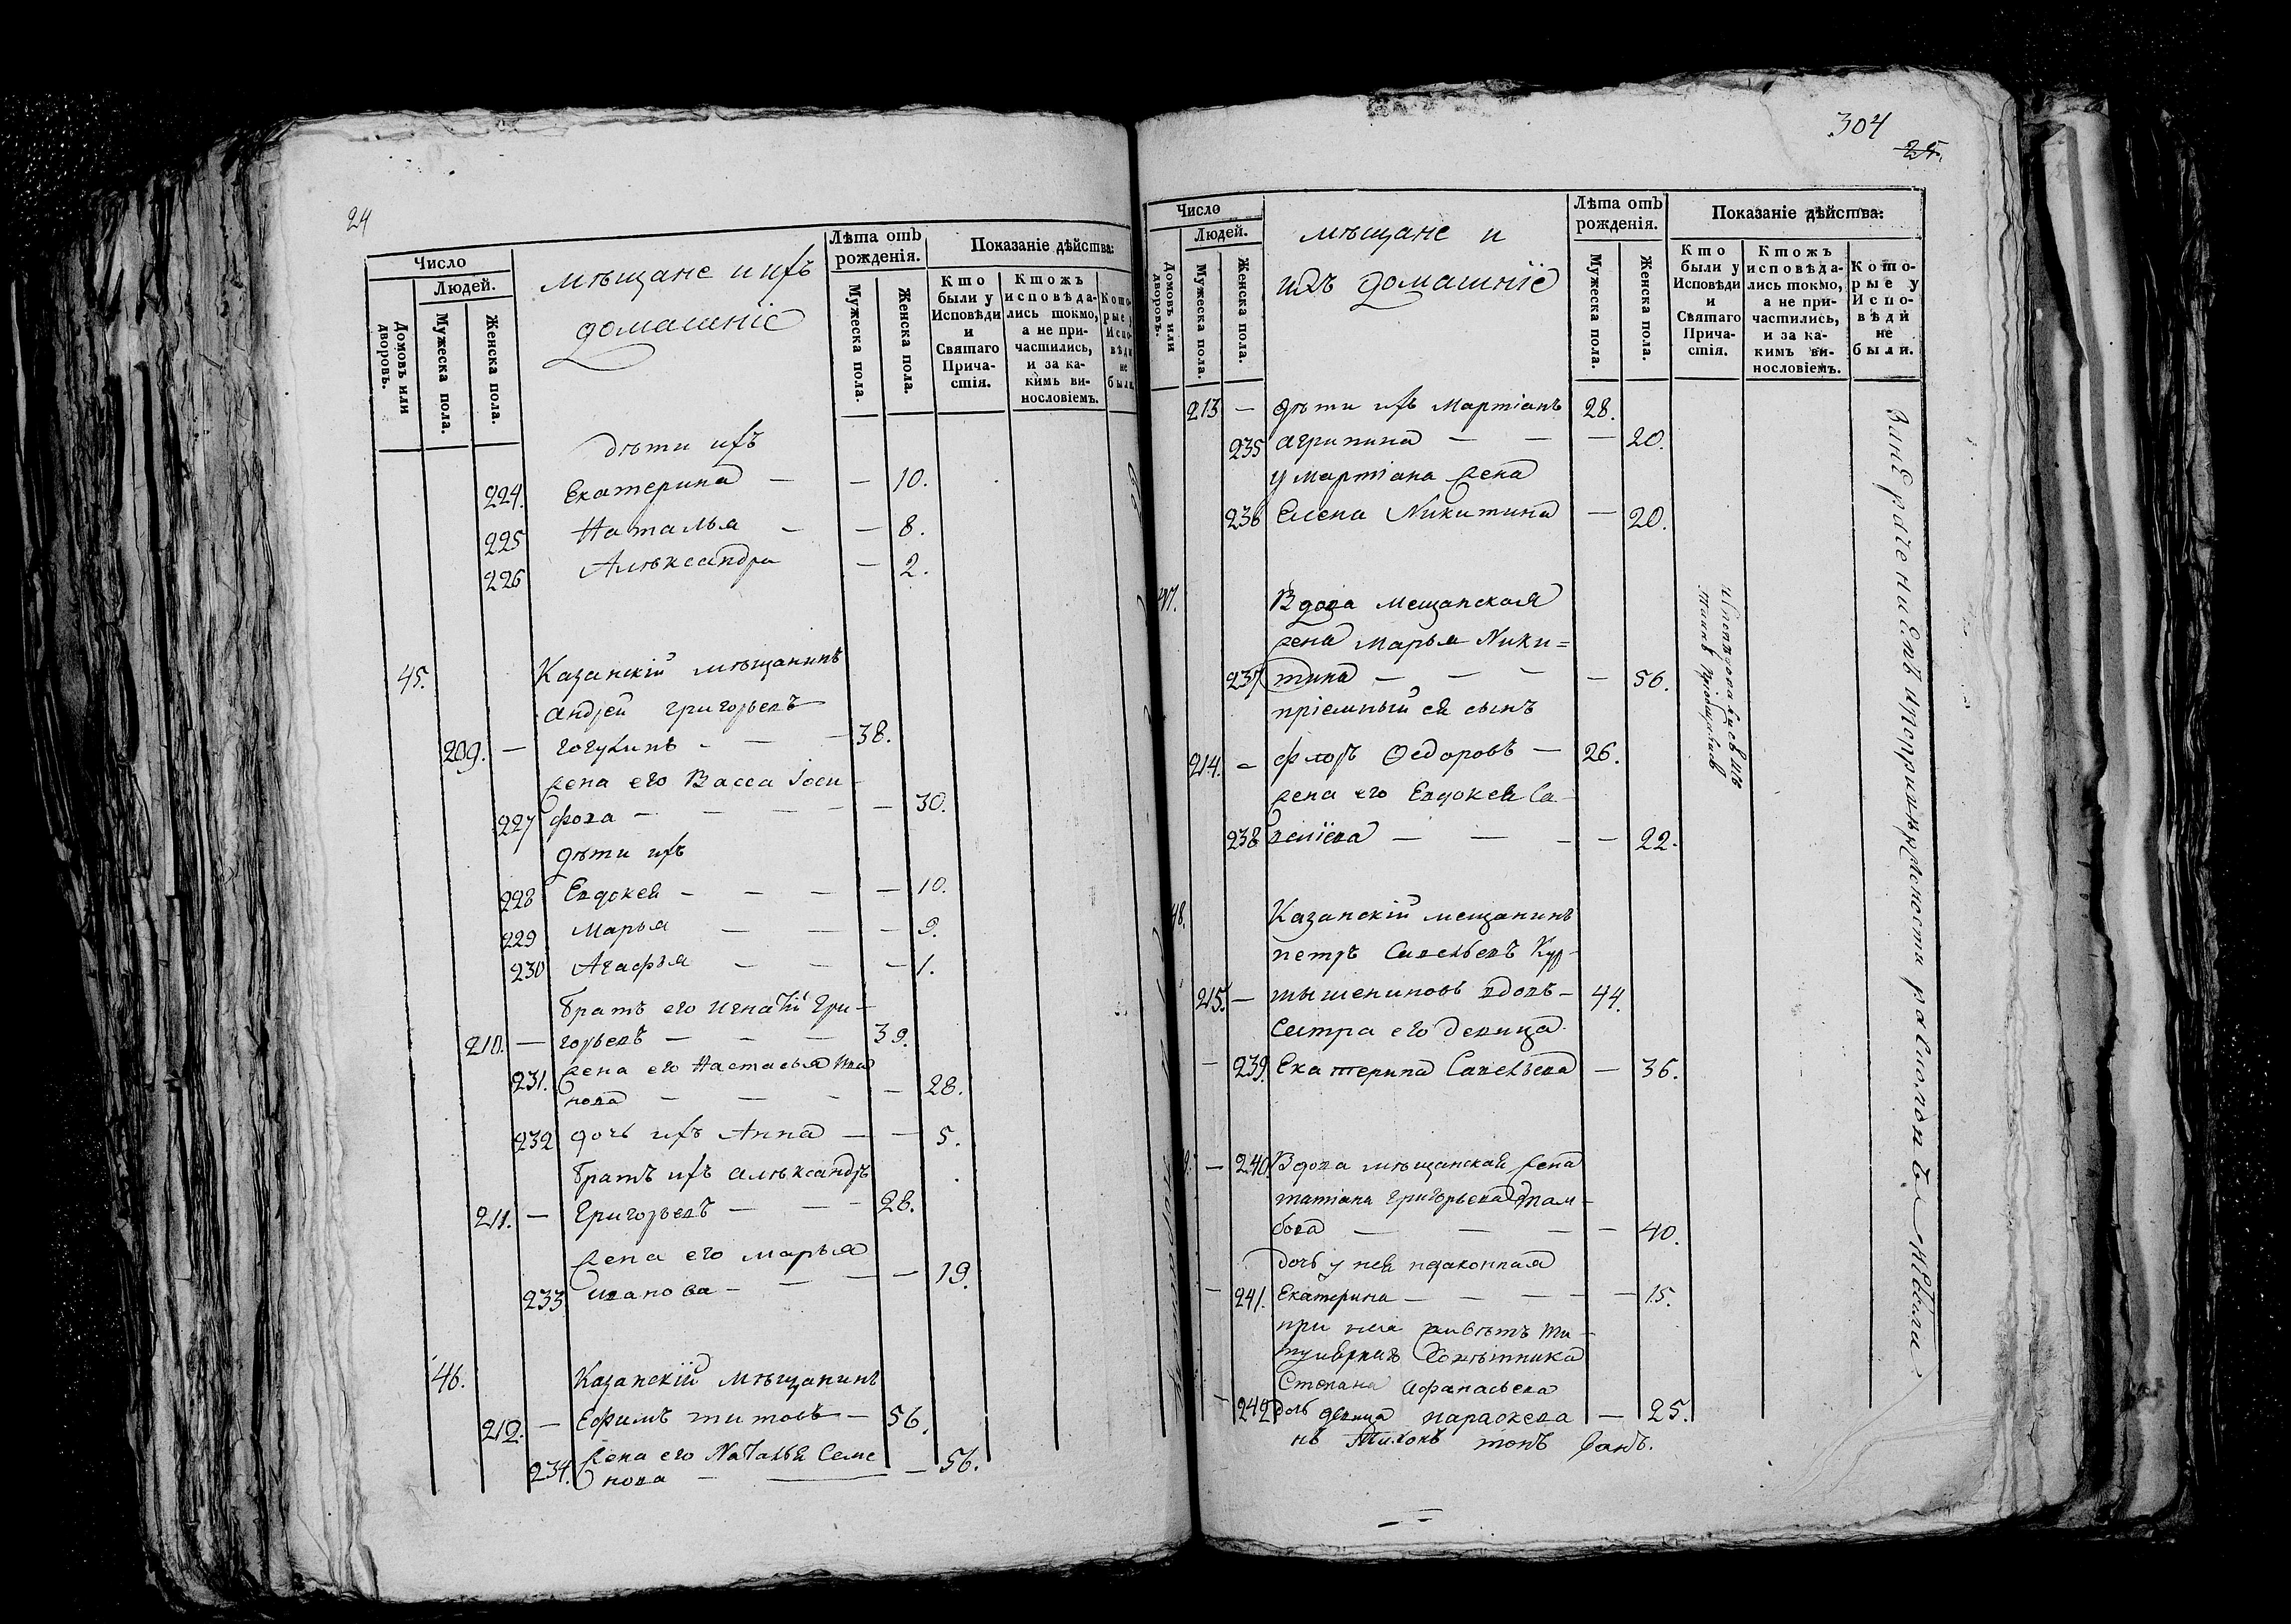 24
Число
Людей.
Домовъ или дворовъ.
Мужеска пола.
Женска пола.
мѣщане и ихъ
домашніе
Лѣта отъ рожденія.
Мужеска пола.
Женска пола.
Показаніе дѣйства:
Кто были у Исповѣди и Святаго Причастія.
Ктожъ исповѣдались токмо, а не причастились, и за какимъ виносло­віемъ.
Которые у Исповѣди не были.
дѣти ихъ
224. Екатерина — — 10.
225 Наталья — — 8.
226 Алѣксандра — 2.
45. Казанскій мѣщанинъ
андрей григорьевъ
209. — — — 38.
жена его Васса Іоси-
227 фова — — — — 30.
дѣти ихъ
228 Евдокея — — — — 10.
229 Марья — — — 9.
230 Агафья — — — 1.
братъ его игнатій гри-
210. — горьевъ — — — 39.
231. жена его Настасья Ива
нова — — — — 28.
232 дочь ихъ Анна — — 5.
братъ ихъ алѣксандръ
211. — Григорьевъ — — — 28.
жена его марья
233 иванова — — — — 19.
46. Казанскій мѣщанинъ
212. — Ефимъ титовъ — 56.
234. жена его Наталья Семе
нова — — — 56.
304
25.
Число
Людей.
Домовъ или дворовъ.
Мужеска пола.
Женска пола.
мѣщане и
ихъ домашніе
Лѣта отъ рожденія.
Мужеска пола.
Женска пола.
Показаніе дѣйства:
Кто были у Исповѣди и Святаго Причастія.
Ктожъ исповѣдались токмо, а не причастились, и за какимъ виносло­віемъ.
Которые у Исповѣди не были.
213 — дѣти ихъ Мартіанъ 28.
235 агрипина — — — 20.
у мартіана жена
236 Елена Никитина — 20.
47. Вдова мещанская
жена марья Ники=
237 тина — — — — 56.
пріемный ея сынъ
214. — флоръ Ѳедоровъ — 26.
жена его Евдокея Са-
238 велїева — — — — 22.
48. Казанскій мещанинъ
петръ Савельевъ Кур-
215. — тышениновъ вдовъ — 44.
Сестра его девица
— 239. Екатерина Савельева — 36.
— 240. Вдова мѣщанская жена
татіана григорьева там-
бова — — — — 40.
дочь у нея незаконная
— 241. Екатерина — — — — — 15.
при ней живѣтъ ти-
тулярнаго Совѣтника
Степана афанасьева
— 242 дочь девица параскева — 25.